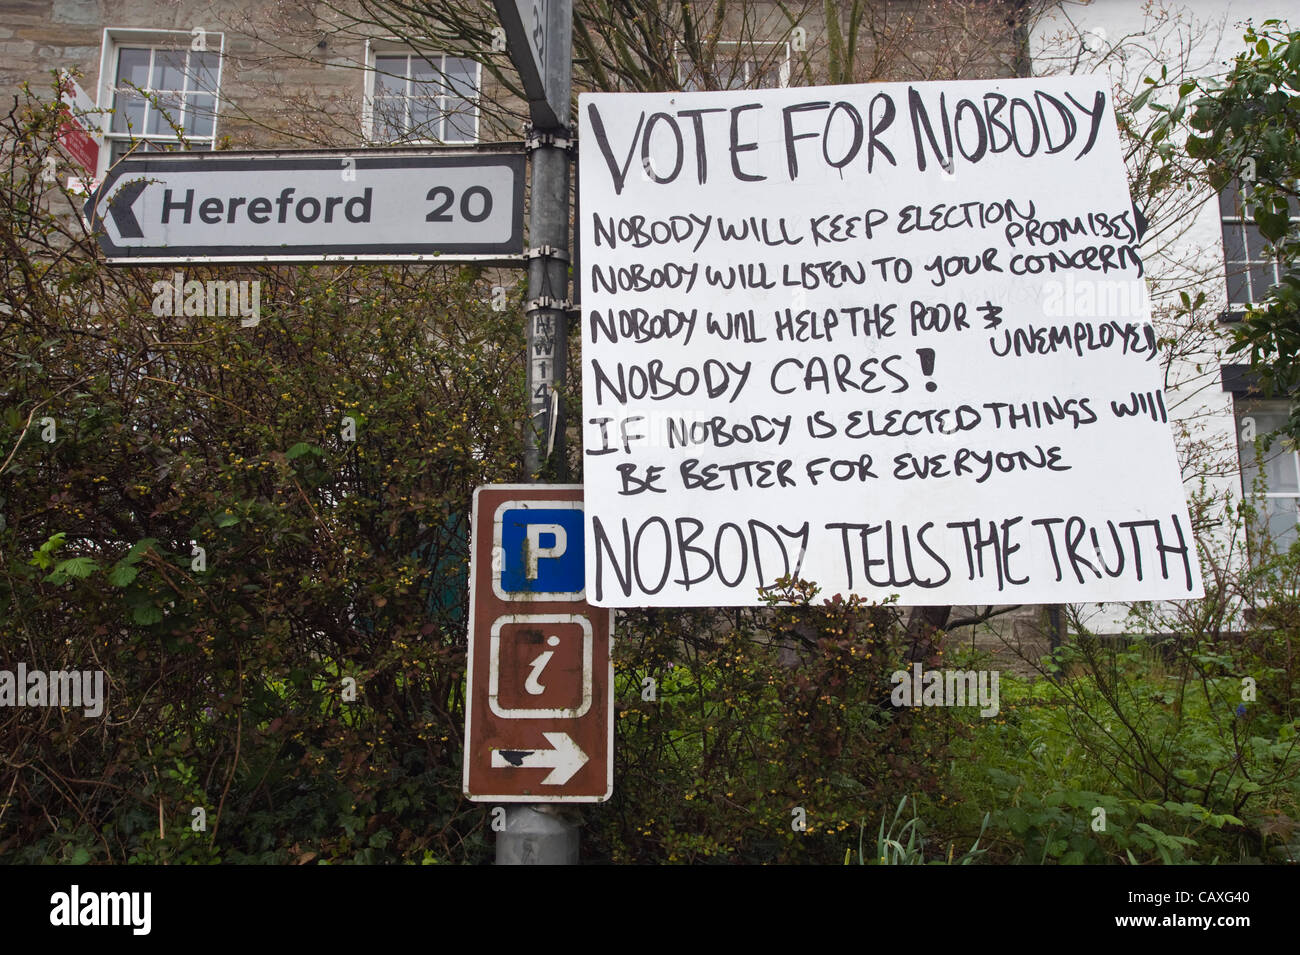 Hereford 20
VOTE FOR NOBODY
NOBODY WILL KEEP ELECTION PROMISES
NOBODY WILL LISTEN TO YOUR CONCERNS
NOBODY WILL HELP THE POOR & UNEMPLOYED
NOBODY CARES!
IF NOBODY IS ELECTED THINGS WILL
BE BETTER FOR EVERYONE
NOBODY TELLS THE TRUTH
P
i
alamy
www.alamy.com
Image ID: CAXG40